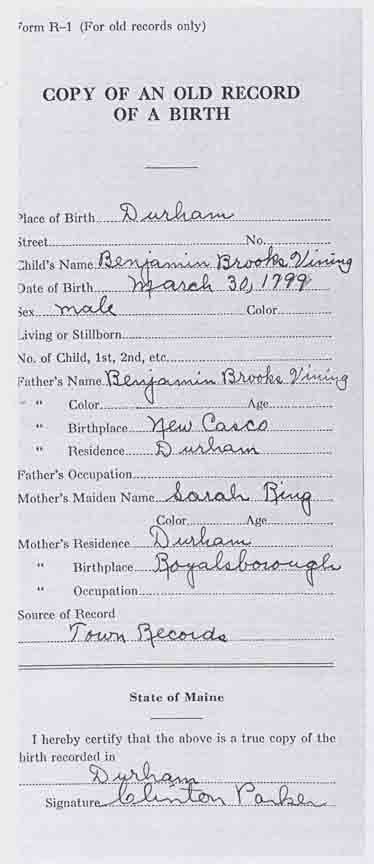 Form R-1 (For old records only)
COPY OF AN OLD RECORD
OF A BIRTH
Place of Birth Durham
Street No.
Child's Name Benjamin Brooks Vining
Date of Birth March 30, 1799
Sex male Color
Living or Stillborn
No. of Child, 1st, 2nd, etc.
Father's Name Benjamin Brooks Vining
" Color Age
" Birthplace New Casco
" Residence Durham
Father's Occupation
Mother's Maiden Name Sarah Ring
Color Age
Mother's Residence Durham
" Birthplace Royalsborough
" Occupation
Source of Record
Town Records
State of Maine
I hereby certify that the above is a true copy of the
birth recorded in
Durham
Signature Clinton Parker